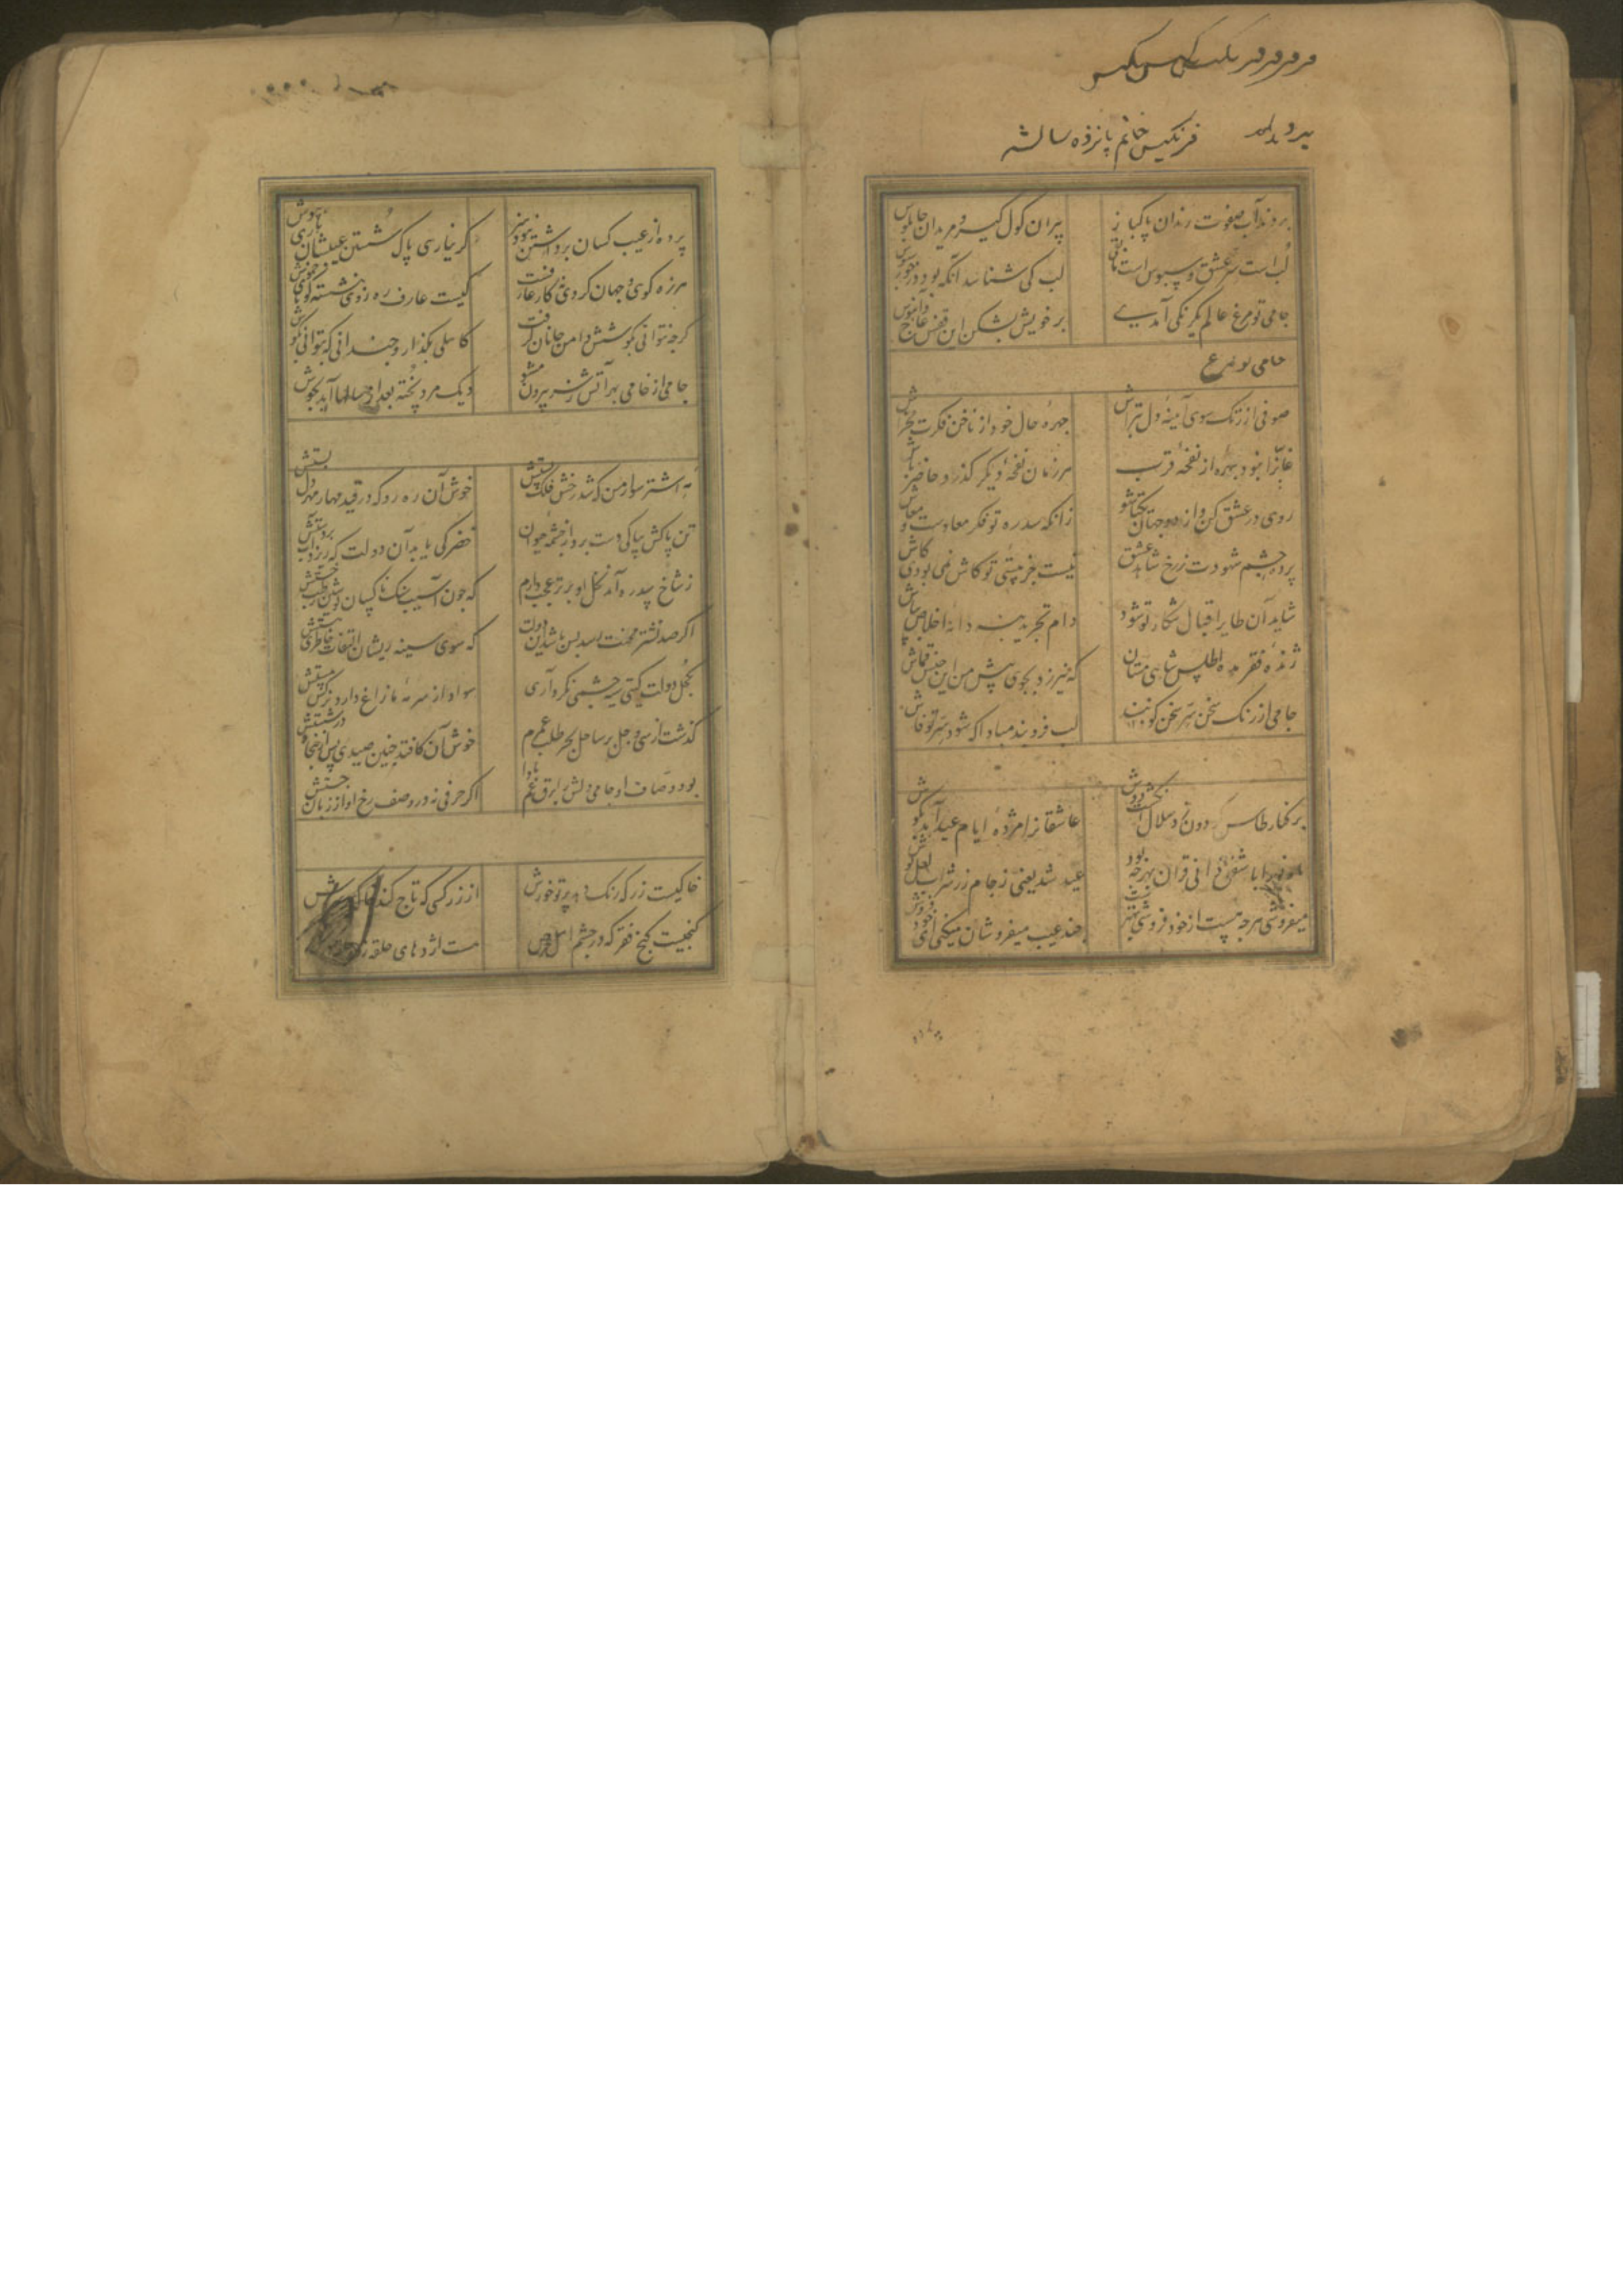 فرنکیس خانم پانزده ساله
بردند آب صفوت رندان پاکباز
پیران کول کیر و مریدان جابلوس
لب است سر عشق و سبوس است مابقی
لب کی شناسد آنکه بود در خور سبوس
جامی تو مرغ عالم یکرنکی آمدی
بر خویش بشکن این قفس عاج و آبنوس
جامی تو مرغ
صوفی از زنک سوی آینه دل بتراش
چهره حال خود از ناخن فکرت مخراش
غایبانرا نبود بهره از نفحه قرب
هر زمان نفحه دیکر کذرد حاضر باش
روی در عشق کن و از دو جهان یکتا شو
زانکه سد ره تو فکر معادست و معاش
پرده چشم شهودت ز رخ شاهد عشق
نیست جز هستی تو کاش نمی بودی کاش
شاید آن طایر اقبال شکار تو شود
دام تجرید بنه دانه اخلاص بپاش
ژنده فقر مده اطلس شاهی مستان
که نیرزد بجوی پیش من این جنس قماش
جامی از رنک سخن سر سخن کو
لب فرو بند مبادا که شود سر تو فاش
بر کنار طاس کردون زد هلال
عاشقانرا مژده ایام عید آمد بکوش
عید شد یعنی ز جام زر شراب لعل نوش
میفروشی هرچه هست از خود فروشی بهترست
چند عیب میفروشان میکنی ای خود فروش
پرده از عیب کسان برداشتن نبود هنر
کر نیاری پاک شستن عیبشان باری بپوش
هرزه کوی و جهان کردی نه کار عارفست
کیست عارف ره روی بنشسته کویای خموش
کرچه نتوانی بکوشش دامن جانان کرفت
کاهلی بکذار و چندانی که بتوانی بکوش
جامی از خامی بهر آتش زنی بیرون مشو
دیک مرد پخته بعد از سالها آید بجوش
مه اشتر سوار من که شد رخش فلک پستش
خوش آن ره رو که در قید مهار مهر دل بستش
تن پاکش بپاکی دست برد از چشمه حیوان
خضر کی یابد آن دولت که ریزد آب بر دستش
ز شاخ سدره آمد نخل او برتر عجب دارم
که چون آسیب سنک ناکسان
اکر صد نشتر محنت رسد بس باشد این دولت
که سوی سینه ریشان التفات خاطری هستش
بکحل دولت کیتی سیه چشمی نکرد آری
سواد از سرمه مازاغ دارد نرکس مستش
کذشت از سی و چل بر ساحل بحر طلب عمرم
خوش آن کافتد چنین صیدی پس از پنجاه در شستش
بود وصاف او جامی دلش را برق غم بادا
اکر حرفی نه در وصف رخ او از زبان جستش
خاکیست زر که رنک دهد پرتو خورش
از زر کسی که تاج کند خاک بر سرش
کنجیست کنج فقر که در چشم اهل حرص
هست اژدهای حلقه زده